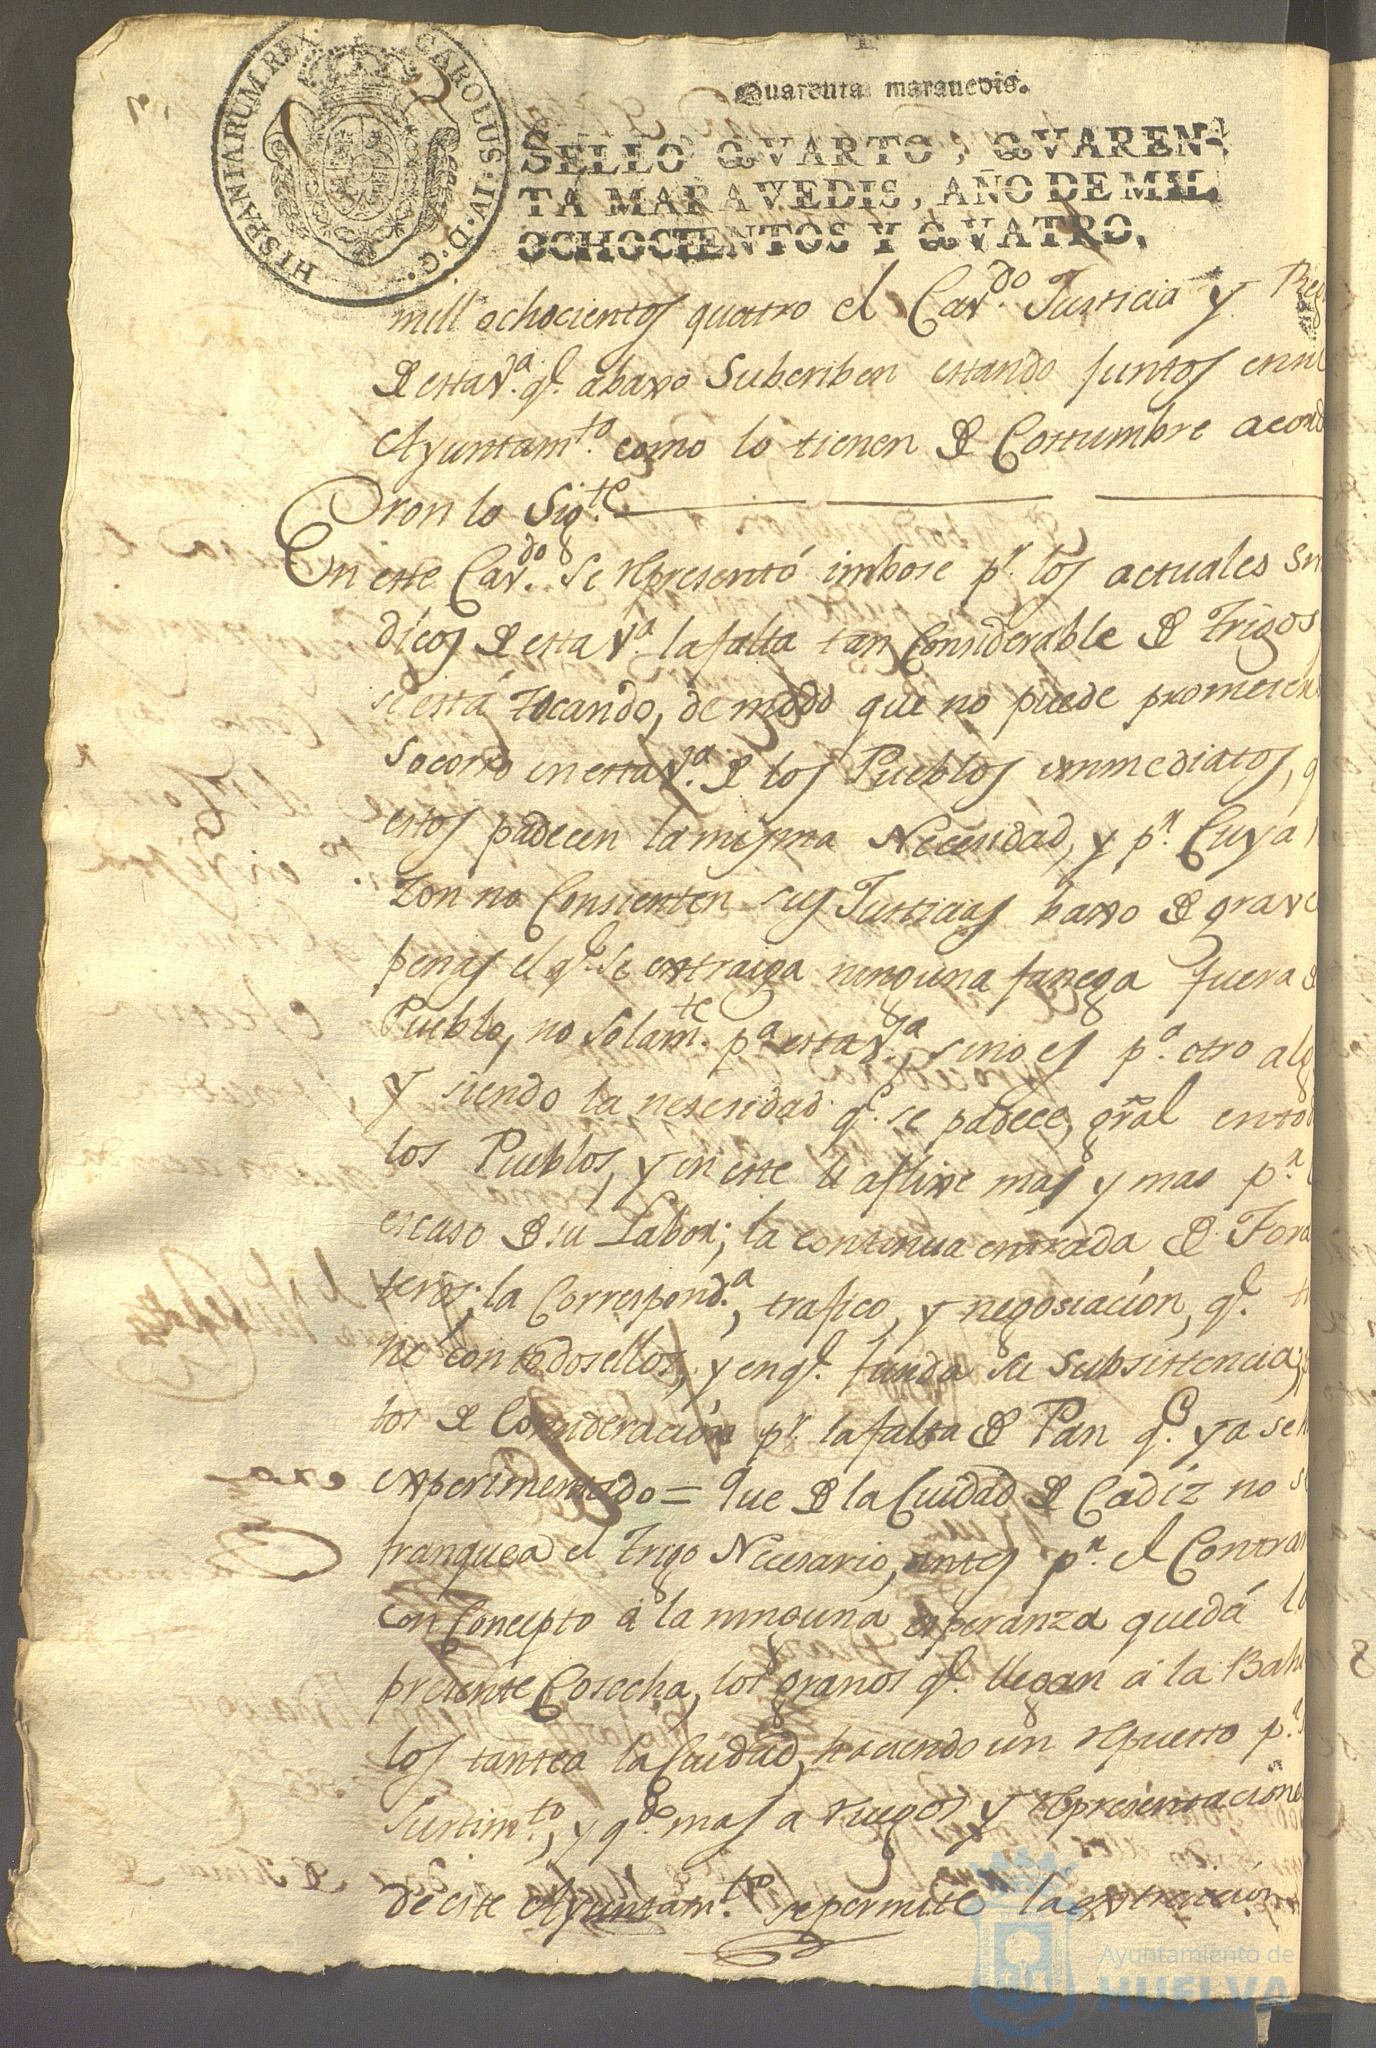 HISPANIARUM.REX. CAROLUS.IV.D.G.
Quarenta marauedis.
SELLO QVARTO, QVAREN-
TA MARAVEDIS, AÑO DE MIL
OCHOCIENTOS Y QVATRO.
mill ochocientos quatro el Cavdo. Justicia y
de esta Va. q. abaxo Subcriben estando juntos en
Ayuntamto. como lo tienen de Costumbre acord
ron lo Sigte.
En este Cavdo. se representó imbose pr. los actuales Sn
dicos de esta Va. la falta tan Considerable de Trigos
se está tocando, de modo que no puede prometers
Socorro en esta Va. de los Pueblos immediatos, q
estos padecen la misma Necesidad, y pr. Cuya
zon no Consienten sus Justicias baxo de grave
penas el q. se extraiga ninguna fanega fuera d
Pueblo, no Solamte. pa. esta Va., sino es pa. otro alg
y siendo la nesesidad q. se padece, gral en tod
los Pueblos, y en este le aflixe mas y mas pr.
escaso de su Labor; la continua entrada de Fora
teros; la Correspondа., trafico, y negosiacion, q. ti
ne con todos ellos, y en q. funda su Subsistencia,
tos de Consideración pr. la falta de Pan q. ya se h
experimentado = Que de la Cuidad de Cadiz no s
franquea el Trigo Necesario, antes pr. el Contrar
con Concepto á la ninguna esperanza quedá l
presente Cosecha, los granos q. llegan á la Bahi
los tantea la Cuidad, haciendo un repuesto pa.
Surtimto., y qdo. mas a ruegos y representacione
de este Ayuntamto. se permite la extraccion
Ayuntamiento de
HUELVA